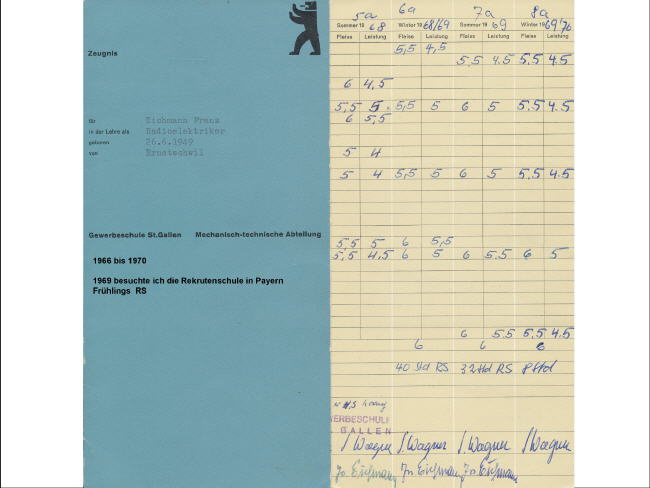 Zeugnis
für Eichmann Franz
in der Lehre als Radioelektriker
geboren 26.6.1949
von Ernetschwil
Gewerbeschule St.Gallen Mechanisch-technische Abteilung
1966 bis 1970
1969 besuchte ich die Rekrutenschule in Payern
Frühlings RS
5a 6a 7a 8a
Sommer 19 68 Winter 19 68/69 Sommer 19 69 Winter 19 69/70
Fleiss Leistung Fleiss Leistung Fleiss Leistung Fleiss Leistung
5,5 4,5
5.5 4.5 5.5 4.5
6 4,5
5,5 5 5,5 5 6 5 5.5 4.5
6 5,5
5 4
5 4 5,5 5 6 5 5.5 4.5
5,5 5 6 5,5
5,5 4,5 6 5 6 5.5 6 5
6 5.5 5.5 4.5
6 6 6
40 Std RS 32 Std RS 8 Std
WERBESCHULE
GALLEN
J. Wagner J. Wagner J. Wagner J. Wagner
Jos. Eichmann Jos. Eichmann Jos. Eichmann